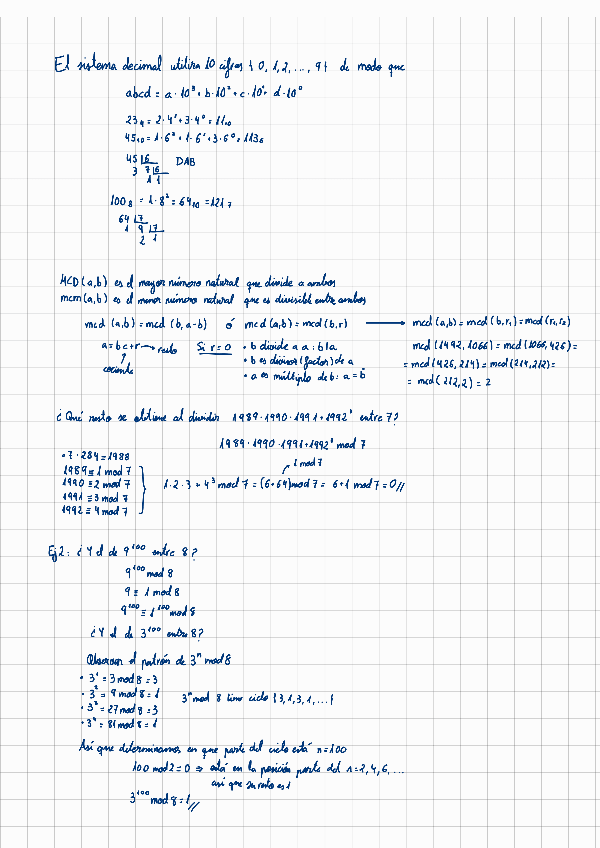 El sistema decimal utiliza 10 cifras { 0, 1, 2, ..., 9 } de modo que
abcd = a·10³ + b·10² + c·10¹ + d·10⁰
23₄ = 2·4¹ + 3·4⁰ = 11₁₀
45₁₀ = 1·6² + 1·6¹ + 3·6⁰ = 113₆
45 |6 DAB
3 7 |6
1 1
100₈ = 1·8² = 64₁₀ = 121₇
64 |7
1 9 |7
2 1
MCD (a,b) es el mayor número natural que divide a ambos
mcm (a,b) es el menor número natural que es divisible entre ambos
mcd (a,b) = mcd (b, a-b) ó mcd (a,b) = mcd (b,r) → mcd (a,b) = mcd (b,r₁) = mcd (r₁,r₂)
a = b c + r → resto Si r = 0 • b divide a a : b|a mcd (1492, 1066) = mcd (1066, 426) =
↑ • b es divisor (factor) de a = mcd (426, 214) = mcd (214, 212) =
cociente • a es múltiplo de b : a = ḃ = mcd (212, 2) = 2
¿Qué resto se obtiene al dividir 1989·1990·1991+1992³ entre 7?
1989·1990·1991+1992³ mod 7
• 7·284 = 1988 1 mod 7
1989 ≡ 1 mod 7
1990 ≡ 2 mod 7 1·2·3 + 4³ mod 7 = (6+64) mod 7 = 6+1 mod 7 = 0//
1991 ≡ 3 mod 7
1992 ≡ 4 mod 7
Ej 2: ¿Y el de 9¹⁰⁰ entre 8?
9¹⁰⁰ mod 8
9 ≡ 1 mod 8
9¹⁰⁰ ≡ 1¹⁰⁰ mod 8
¿Y el de 3¹⁰⁰ entre 8?
Observar el patrón de 3ⁿ mod 8
• 3¹ = 3 mod 8 = 3
• 3² = 9 mod 8 = 1 3ⁿ mod 8 tiene ciclo {3, 1, 3, 1, ...}
• 3³ = 27 mod 8 = 3
• 3⁴ = 81 mod 8 = 1
Así que determinamos en que parte del ciclo está n=100
100 mod 2 = 0 ⇒ está en la posición parte del n=2,4,6,...
así que su resto es 1
3¹⁰⁰ mod 8 = 1//